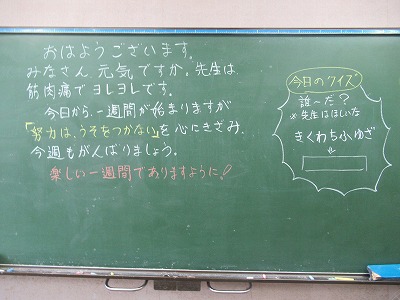 おはようございます。
みなさん 元気ですか。先生は、
筋肉痛でヨレヨレです。
今日から、一週間が始まりますが
「努力は、うそをつかない」を心にきざみ、
今週もがんばりましょう。
楽しい一週間でありますように!
今日のクイズ
誰〜だ?
※先生はほしいな
きくわちふゆざ